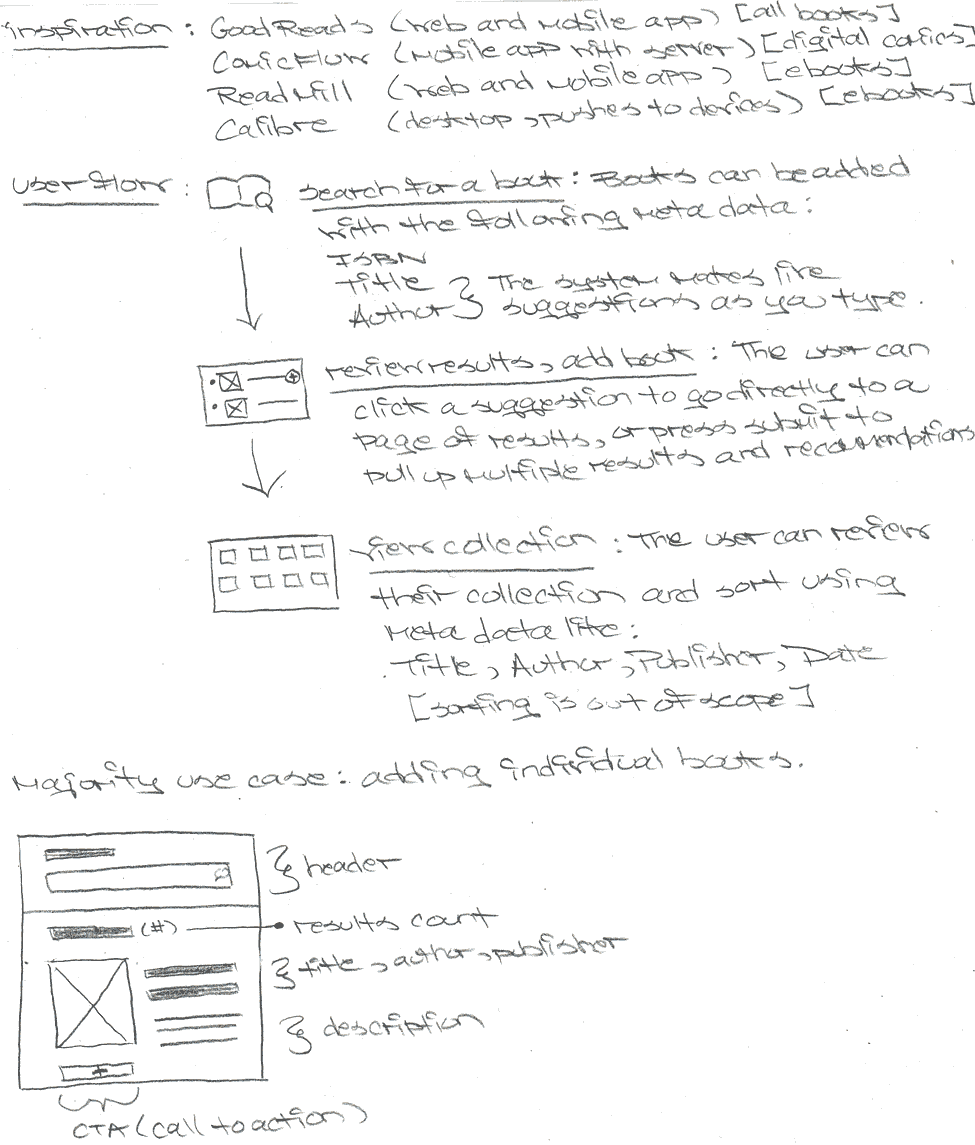 inspiration : GoodReads (web and mobile app) [all books]
ComicFlow (mobile app with server) [digital comics]
ReadMill (web and mobile app) [ebooks]
Calibre (desktop, pushes to devices) [ebooks]
user flow : search for a book : Books can be added
with the following meta data :
ISBN
Title } The system makes live
Author } suggestions as you type.
review results, add book : The user can
click a suggestion to go directly to a
page of results, or press submit to
pull up multiple results and recomendations
view collection : The user can review
their collection and sort using
meta data like :
Title, Author, Publisher, Date
[sorting is out of scope]
Majority use case : adding individual books.
header
(#) results count
title, author, publisher
description
+
CTA (call to action)